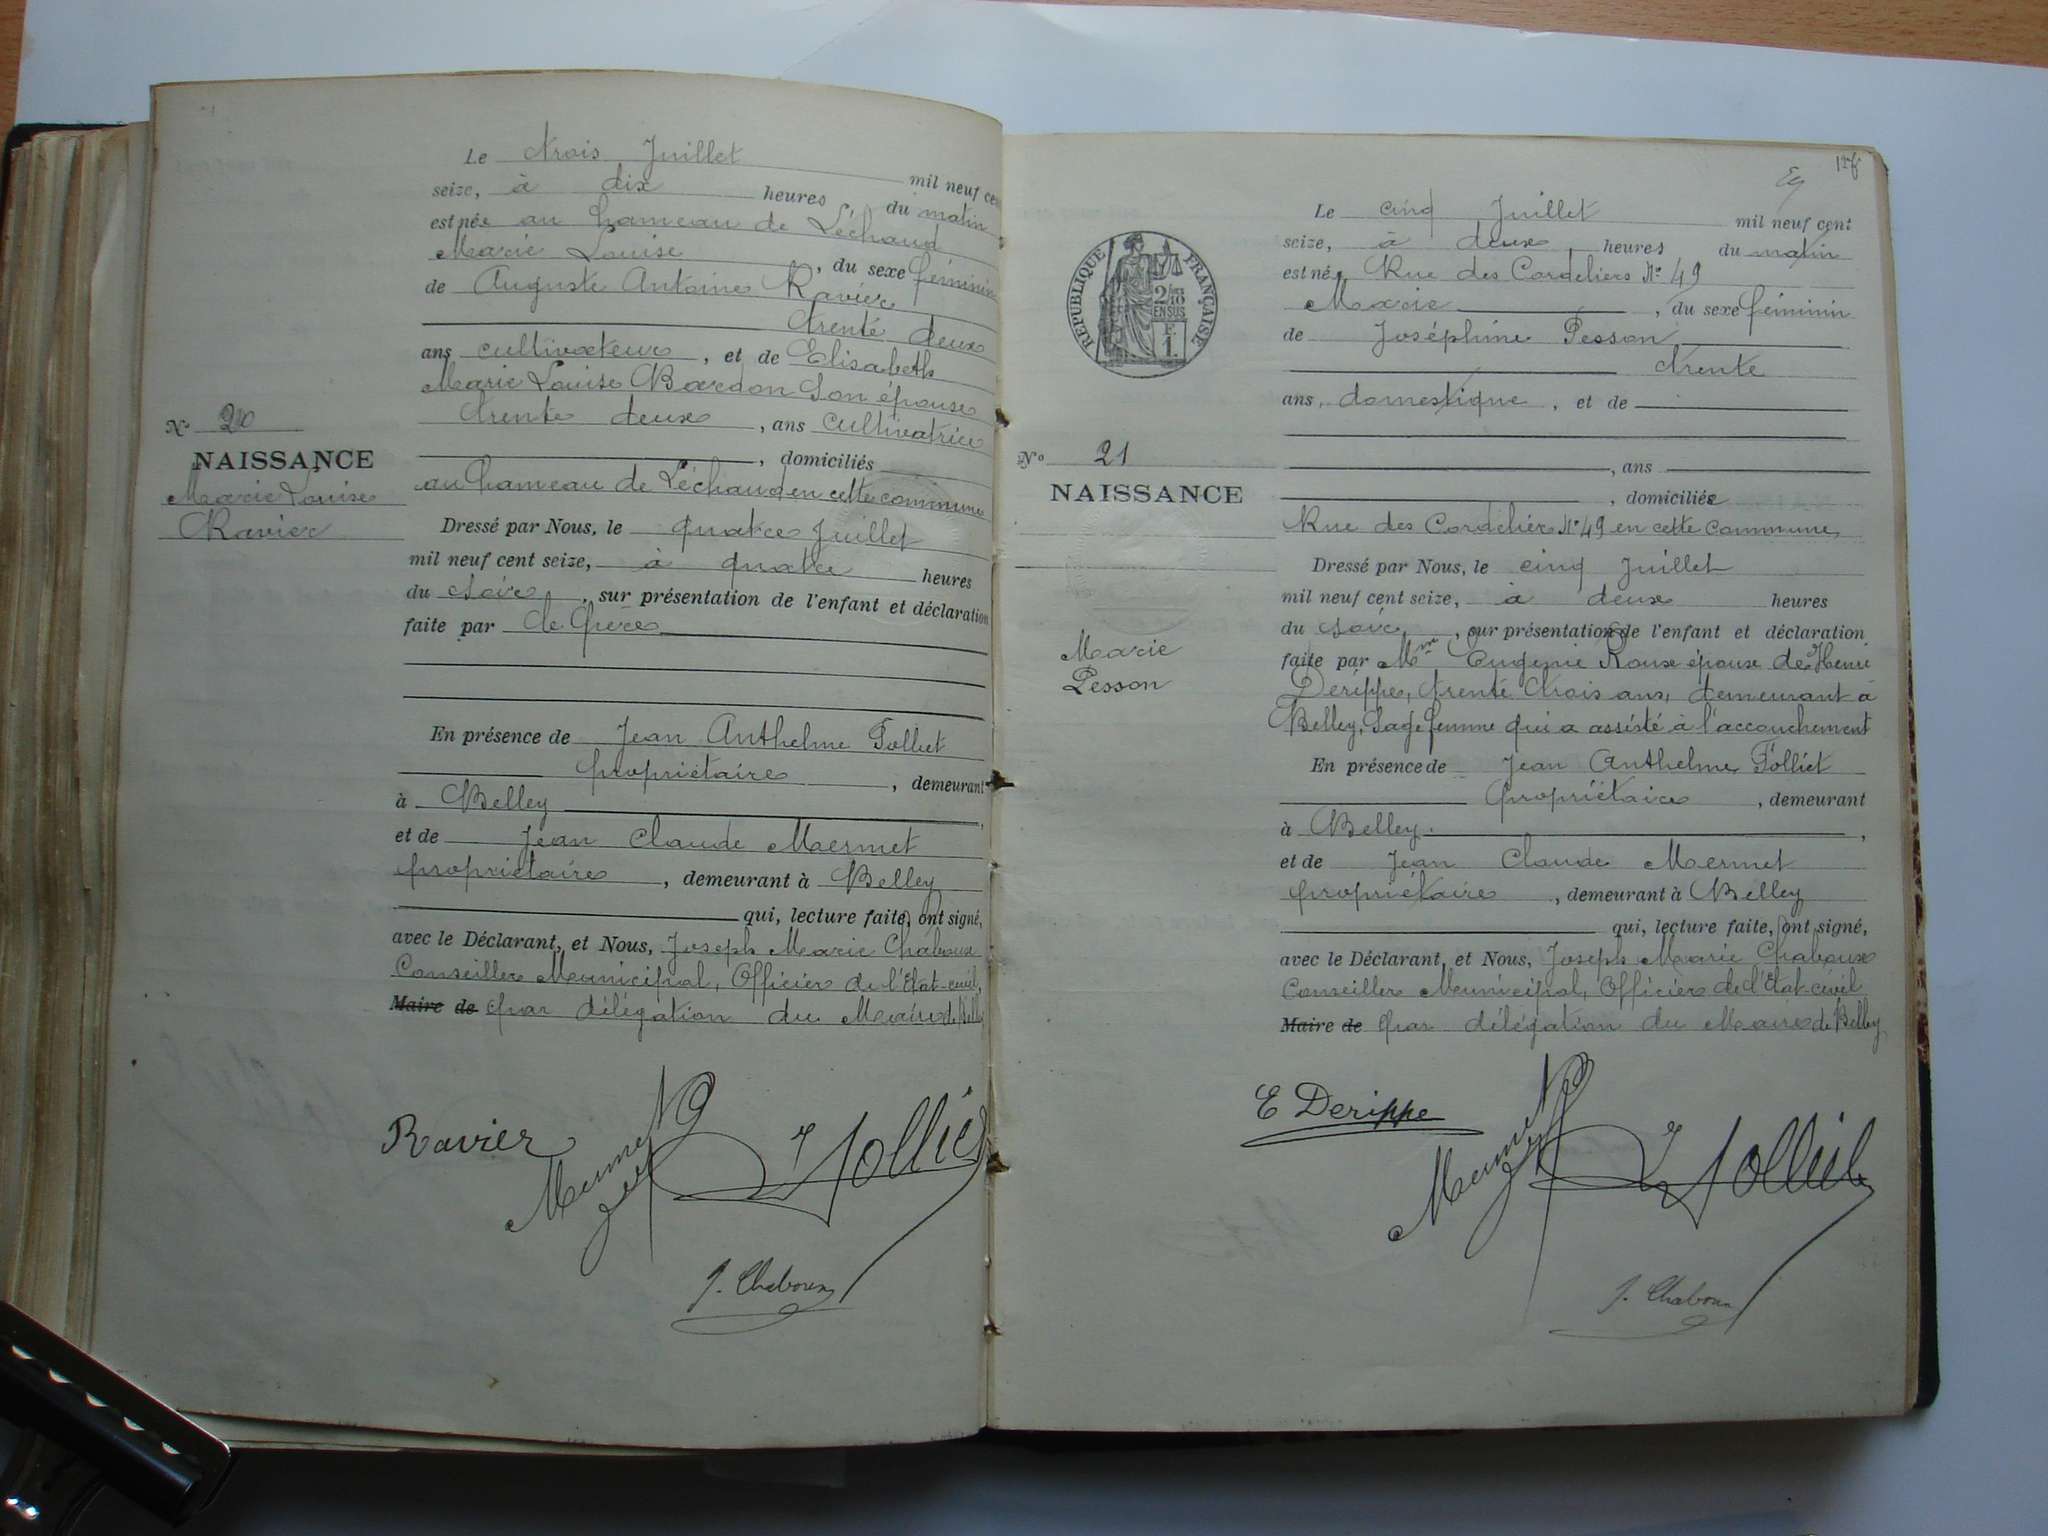 Le trois Juillet mil neuf cent
seize, à dix heures du matin
est née au hameau de Léchaud
Marie Louise, du sexe féminin
de Auguste Antoine Ravier
trente deux
ans cultivateur, et de Elisabeth
Marie Louise Bardon son épouse
trente deux, ans cultivatrice
, domiciliés
au hameau de Léchaud en cette commune
N° 20
NAISSANCE
Marie Louise
Ravier
Dressé par Nous, le quatre Juillet
mil neuf cent seize, à quatre heures
du soir, sur présentation de l'enfant et déclaration
faite par le père
En présence de Jean Anthelme Folliet
propriétaire, demeurant
à Belley,
et de Jean Claude Mermet
propriétaire, demeurant à Belley
qui, lecture faite, ont signé,
avec le Déclarant, et Nous, Joseph Marie Chaboux
Conseiller Municipal, Officier de l'Etat-civil,
Maire de par délégation du Maire de Belley
Ravier
Mermet
Folliet
J. Chaboux
Le cinq Juillet mil neuf cent
seize, à deux heures du matin
est née Rue des Cordeliers N° 49
Marie, du sexe féminin
de Joséphine Pesson
trente
ans, domestique, et de
, ans
, domiciliée
Rue des Cordeliers N° 49 en cette commune
RÉPUBLIQUE FRANÇAISE
2/10 EN SUS
F.
1.
N° 21
NAISSANCE
Marie
Pesson
Dressé par Nous, le cinq Juillet
mil neuf cent seize, à deux heures
du soir, sur présentation de l'enfant et déclaration
faite par Mme Eugenie Roux épouse de Henri
Derippe, trente trois ans, demeurant à
Belley, Sage femme qui a assisté à l'accouchement
En présence de Jean Anthelme Folliet
propriétaire, demeurant
à Belley,
et de Jean Claude Mermet
propriétaire, demeurant à Belley
qui, lecture faite, ont signé,
avec le Déclarant, et Nous, Joseph Marie Chaboux
Conseiller Municipal, Officier de l'Etat-civil
Maire de par délégation du Maire de Belley
E Derippe
Mermet
Folliet
J. Chaboux